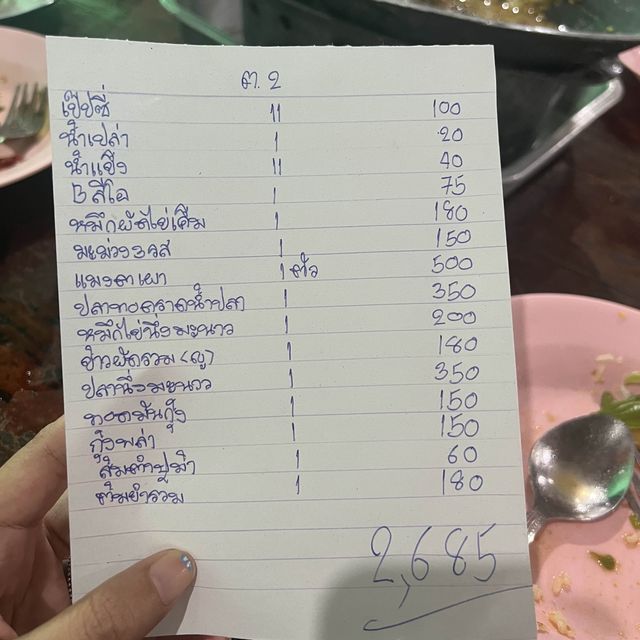 ต.2
เป๊ปซี่ 11 100
น้ำเปล่า 1 20
น้ำแข็ง 11 40
B ลีโอ 1 75
หมึกผัดไข่เค็ม 1 180
มะม่วง 1 150
แมงดาเผา 1 ตัว 500
ปลาทอดราดน้ำปลา 1 350
หมึกไข่นึ่งมะนาว 1 200
ข้าวผัดรวม 1 180
ปลานึ่งมะนาว 1 350
ทอดมันกุ้ง 1 150
กุ้งพล่า 1 150
ส้มตำปูม้า 1 60
ต้มยำรวม 1 180
2,685